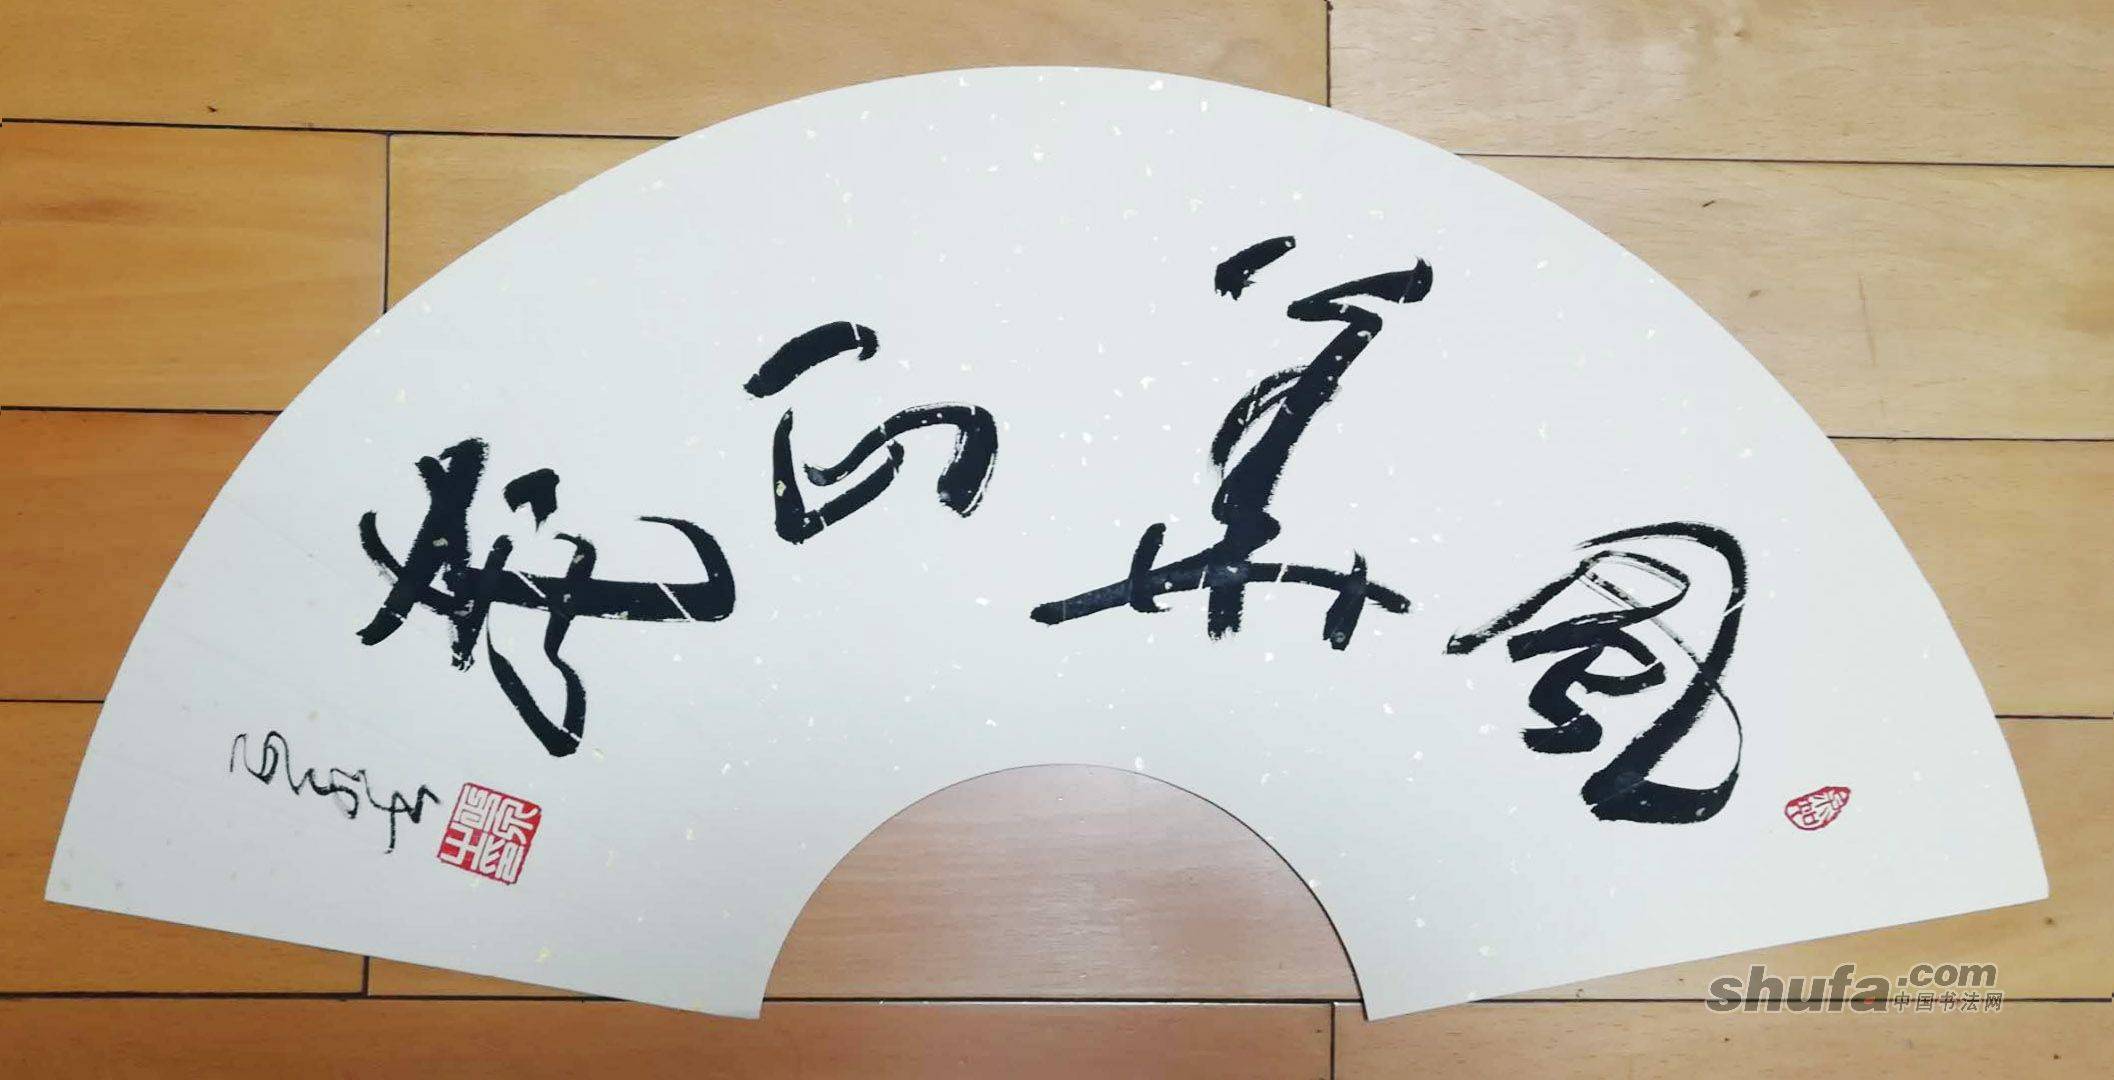 風華正茂
shufa.com
中国书法网